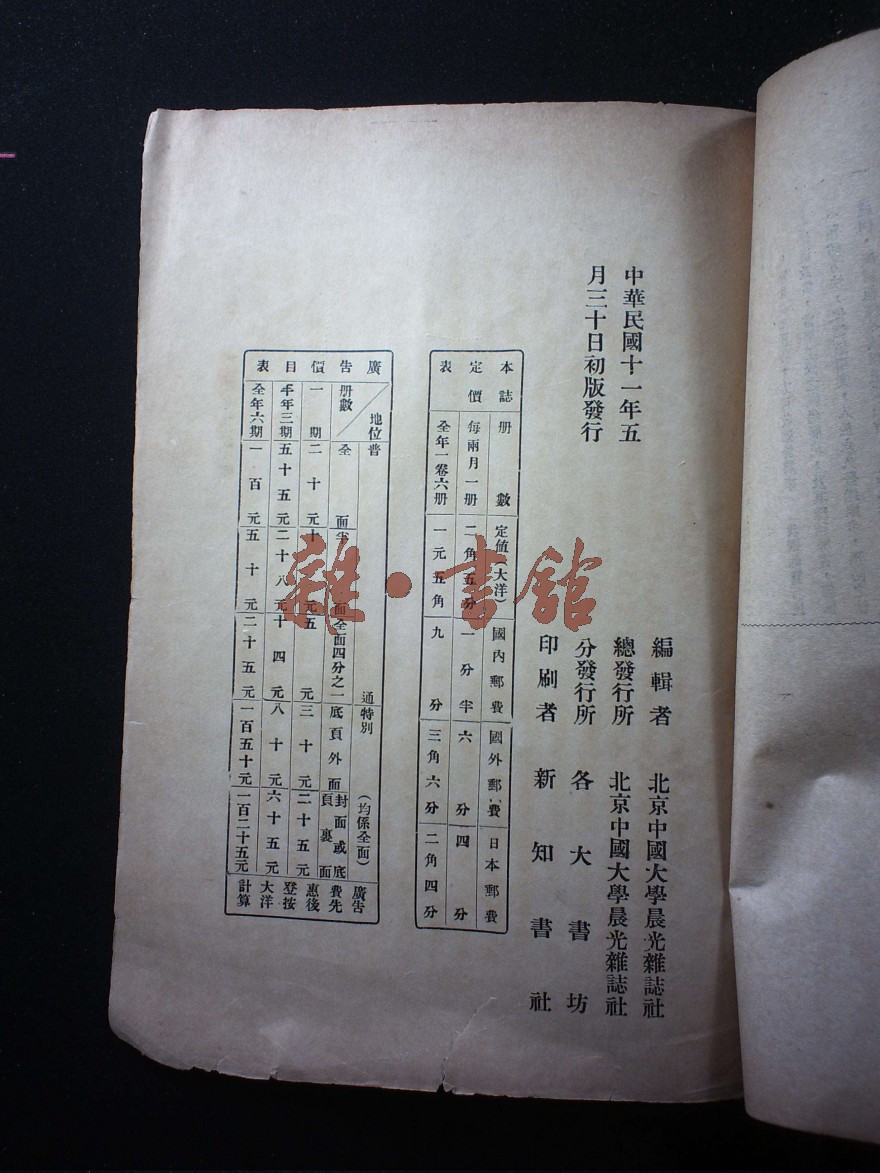 中華民國十一年五
月三十日初版發行
編輯者 北京中國大學晨光雜誌社
總發行所 北京中國大學晨光雜誌社
分發行所 各大書坊
印刷者 新知書社
本誌定價表
册數 定値(大洋) 國內郵費 國外郵費 日本郵費
每兩月一册 二角五分 一分半 六分 四分
全年一卷六册 一元五角 九分 三角六分 二角四分
廣告價目表
地位 普通 特別 (均係全面)
册數 全面 半面 全面四分之一 底頁外面 封面或底頁裏面
一期 二十元 十元 五元 三十元 二十五元
半年三期 五十五元 二十八元 十四元 八十元 六十五元
全年六期 一百元 五十元 二十五元 一百五十元 一百二十五元
廣告
費先
惠後
登按
大洋
計算
雜·書館